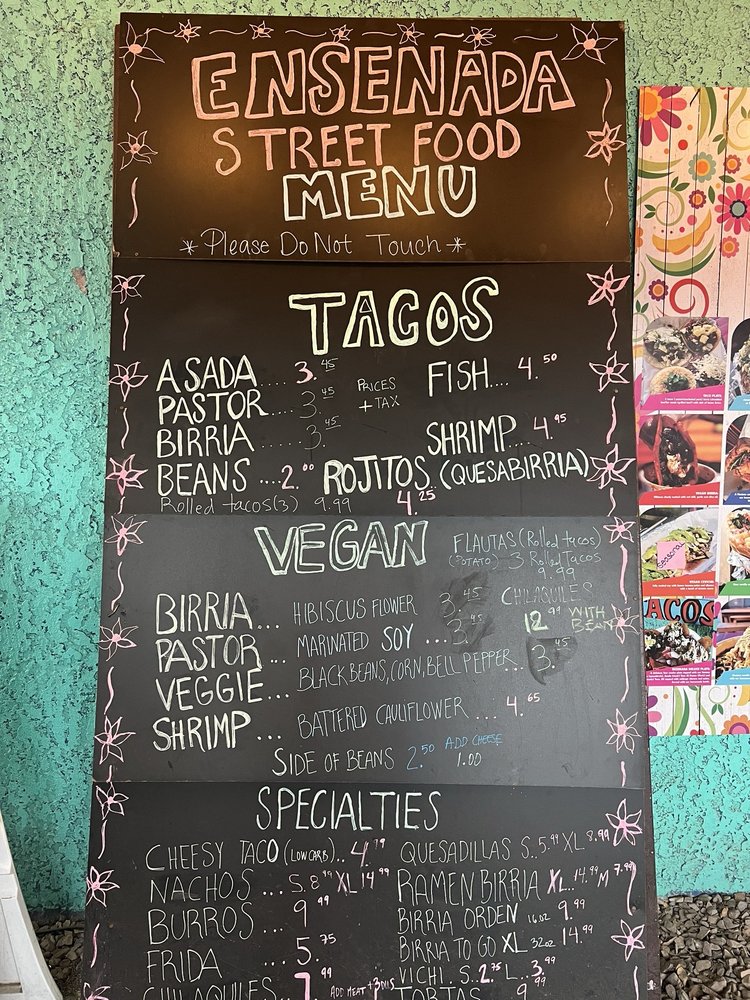 ENSENADA
STREET FOOD
MENU
*Please Do Not Touch*
TACOS
ASADA.... 3.45
PASTOR... 3.45
BIRRIA ..... 3.45
BEANS ....2.00
Rolled tacos(3) 9.99
PRICES
+ TAX
FISH.... 4.50
SHRIMP... 4.95
ROJITOS. (QUESABIRRIA)
4.25
VEGAN
FLAUTAS (Rolled tacos)
(POTATO) 3 Rolled Tacos
9.99
CHILAQUILES
12.99 WITH
BEAN
BIRRIA... HIBISCUS FLOWER 3.45
PASTOR... MARINATED SOY ... 3.45
VEGGIE... BLACK BEANS, CORN, BELL PEPPER... 3.45
SHRIMP... BATTERED CAULIFLOWER .... 4.65
SIDE OF BEANS 2.50 ADD CHEESE
1.00
SPECIALTIES
CHEESY TACO (LOW CARB).. 4.79
NACHOS ... S.8.99 XL 14.99
BURROS ... 9.99
FRIDA ... 5.75
CHILAQUILES 7.99 ADD MEAT +3
QUESADILLAS S..5.99 XL 8.99
RAMEN BIRRIA XL..14.99 M 7.99
BIRRIA ORDEN 16oz 9.99
BIRRIA TO GO XL 32oz 14.99
VICHI. S..2.75 L..3.99
TORTAS 9.99
SEASONAL
TACOS